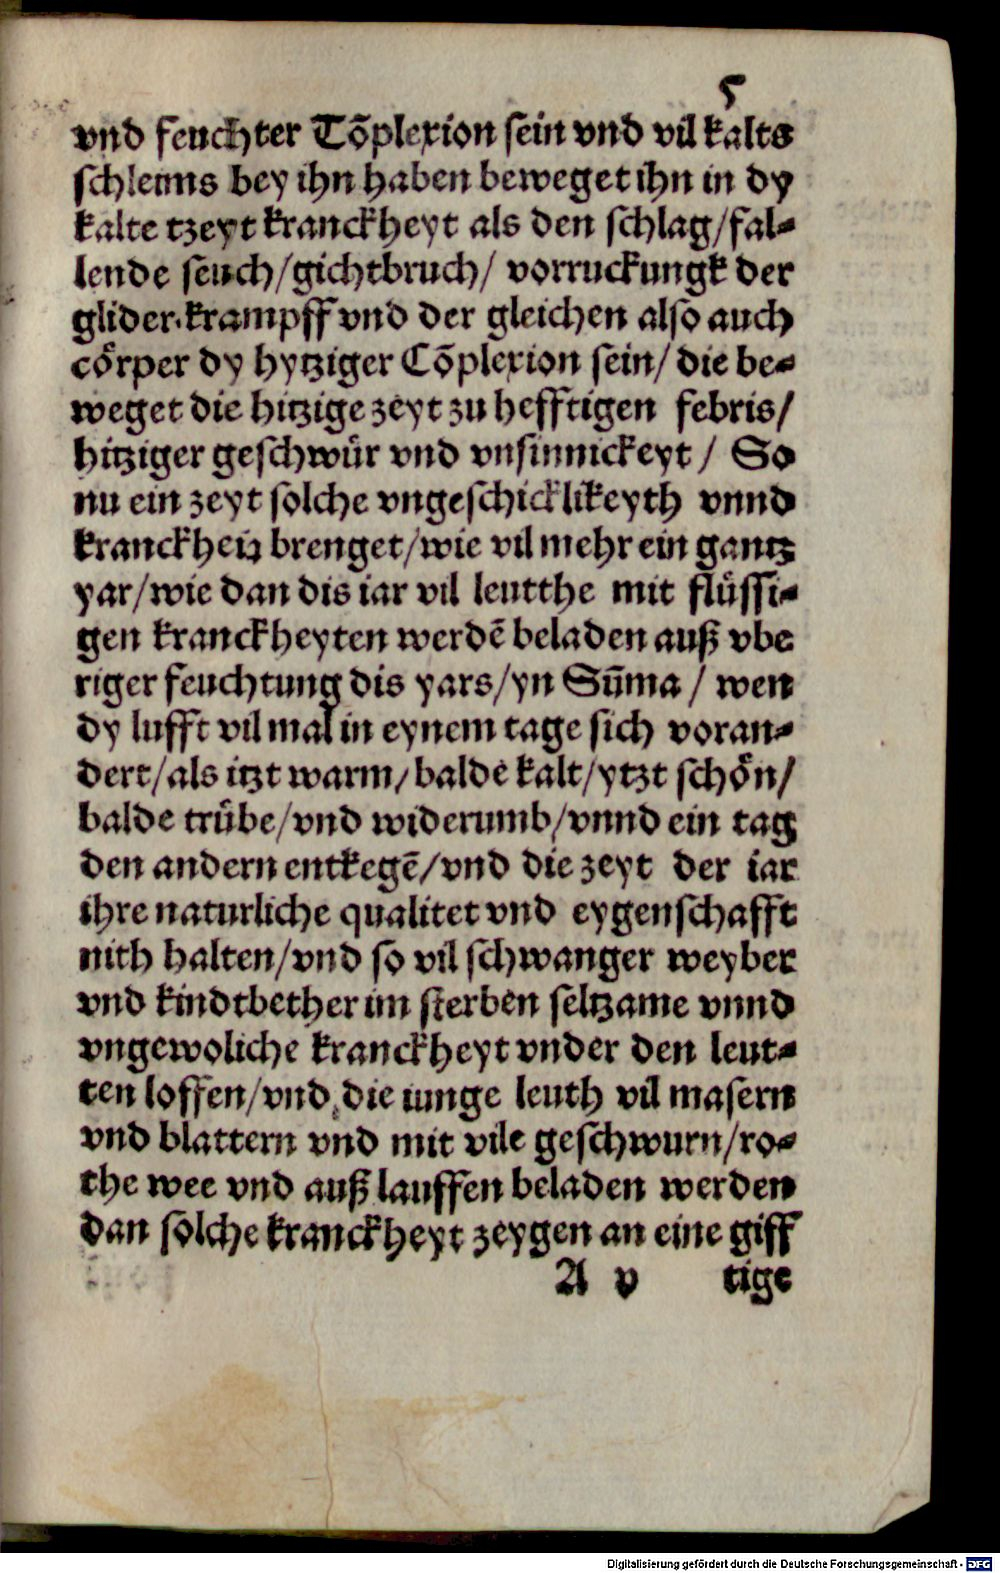 5
vnd feuchter Cõplexion sein vnd vil kalts
schleims bey ihn haben beweget ihn in dy
kalte tzeyt kranckheyt als den schlag/fal-
lende seuch/gichtbruch/ vorruckungk der
glider.krampff vnd der gleichen also auch
cörper dy hytziger Cõplexion sein/ die be-
weget die hitzige zeyt zu hefftigen febris/
hitziger geschwür vnd vnsinnickeyt / So
nu ein zeyt solche vngeschicklikeyth vnnd
kranckheitz brenget/wie vil mehr ein gantz
yar/wie dan dis iar vil leutthe mit flüssi-
gen kranckheyten werdẽ beladen auß vbe
riger feuchtung dis yars/yn Sũma / wen
dy lufft vil mal in eynem tage sich voran-
dert/als itzt warm/balde kalt/ytzt schön/
balde trübe/vnd widerumb/vnnd ein tag
den andern entkegẽ/vnd die zeyt der iar
ihre naturliche qualitet vnd eygenschafft
nith halten/vnd so vil schwanger weyber
vnd kindtbether im sterben seltzame vnnd
vngewoliche kranckheyt vnder den leut-
ten loffen/vnd die iunge leuth vil masern
vnd blattern vnd mit vile geschwurn/ro-
the wee vnd auß lauffen beladen werden
dan solche kranckheyt zeygen an eine giff
A v tige
Digitalisierung gefördert durch die Deutsche Forschungsgemeinschaft - DFG